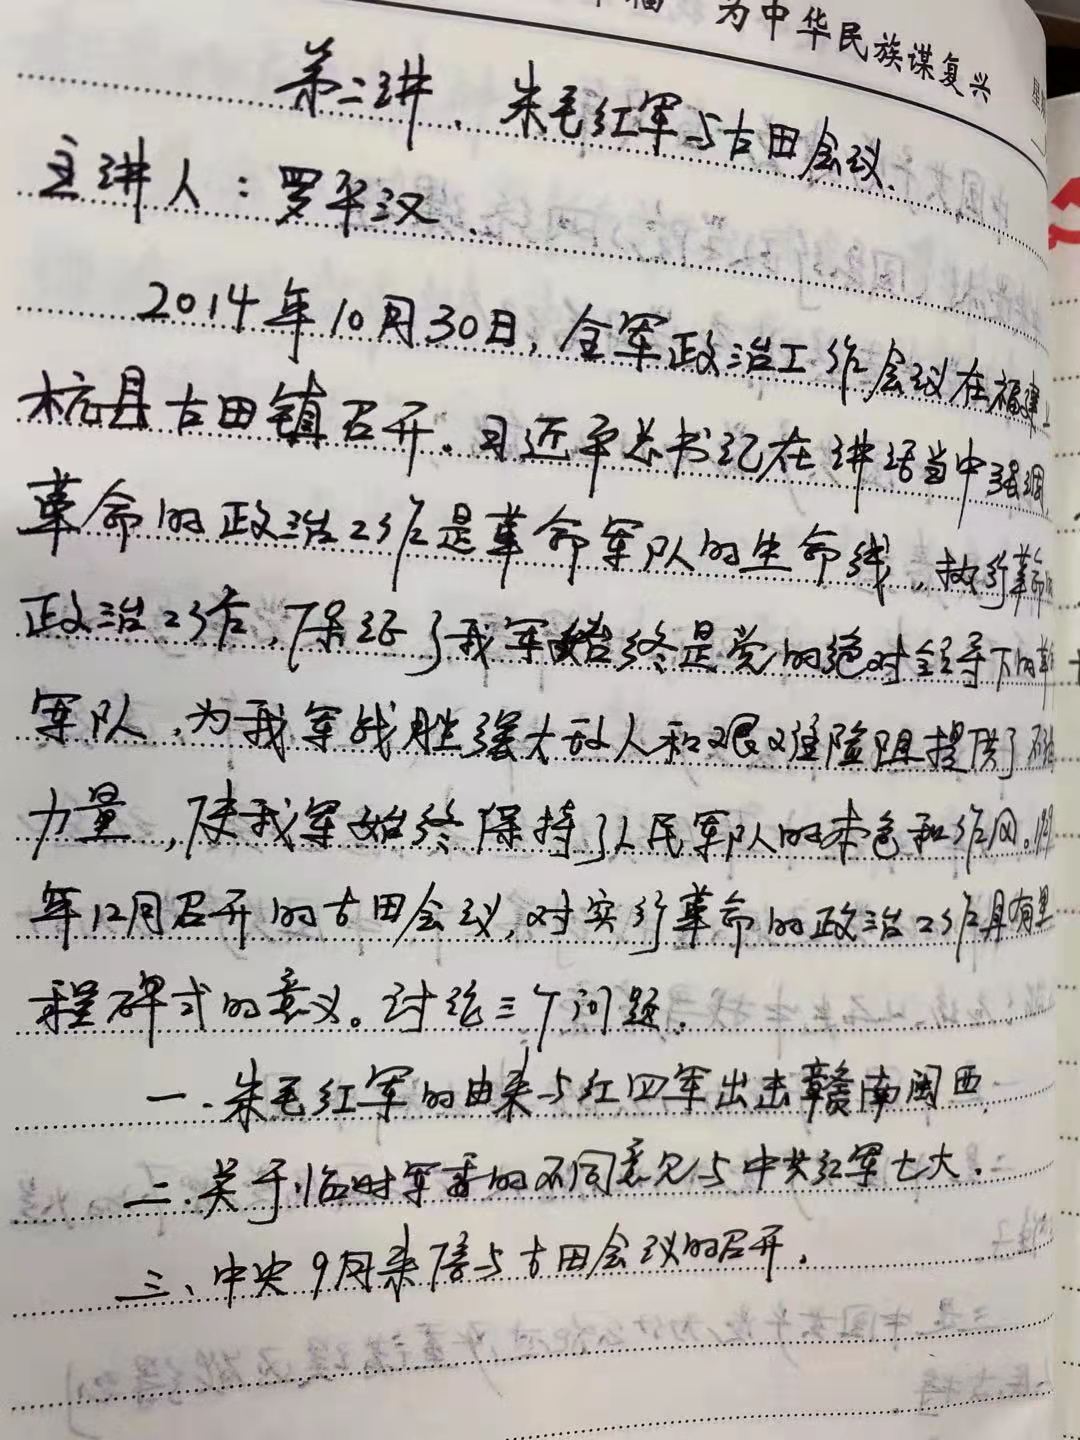 为中华民族谋复兴
第二讲、朱毛红军与古田会议.
主讲人：罗平汉.
2014年10月30日,全军政治工作会议在福建上
杭县古田镇召开。习近平总书记在讲话当中强调,
革命的政治工作是革命军队的生命线,执行革命的
政治工作,保证了我军始终是党的绝对领导下的革命
军队,为我军战胜强大敌人和艰难险阻提供了不竭
力量,使我军始终保持了人民军队的本色和作风。
年12月召开的古田会议,对实行革命的政治工作具有里
程碑式的意义。讨论三个问题.
一.朱毛红军的由来与红四军出击赣南闽西.
二.关于临时军委的不同意见与中共红军七大.
三、中央9月来信与古田会议的召开.